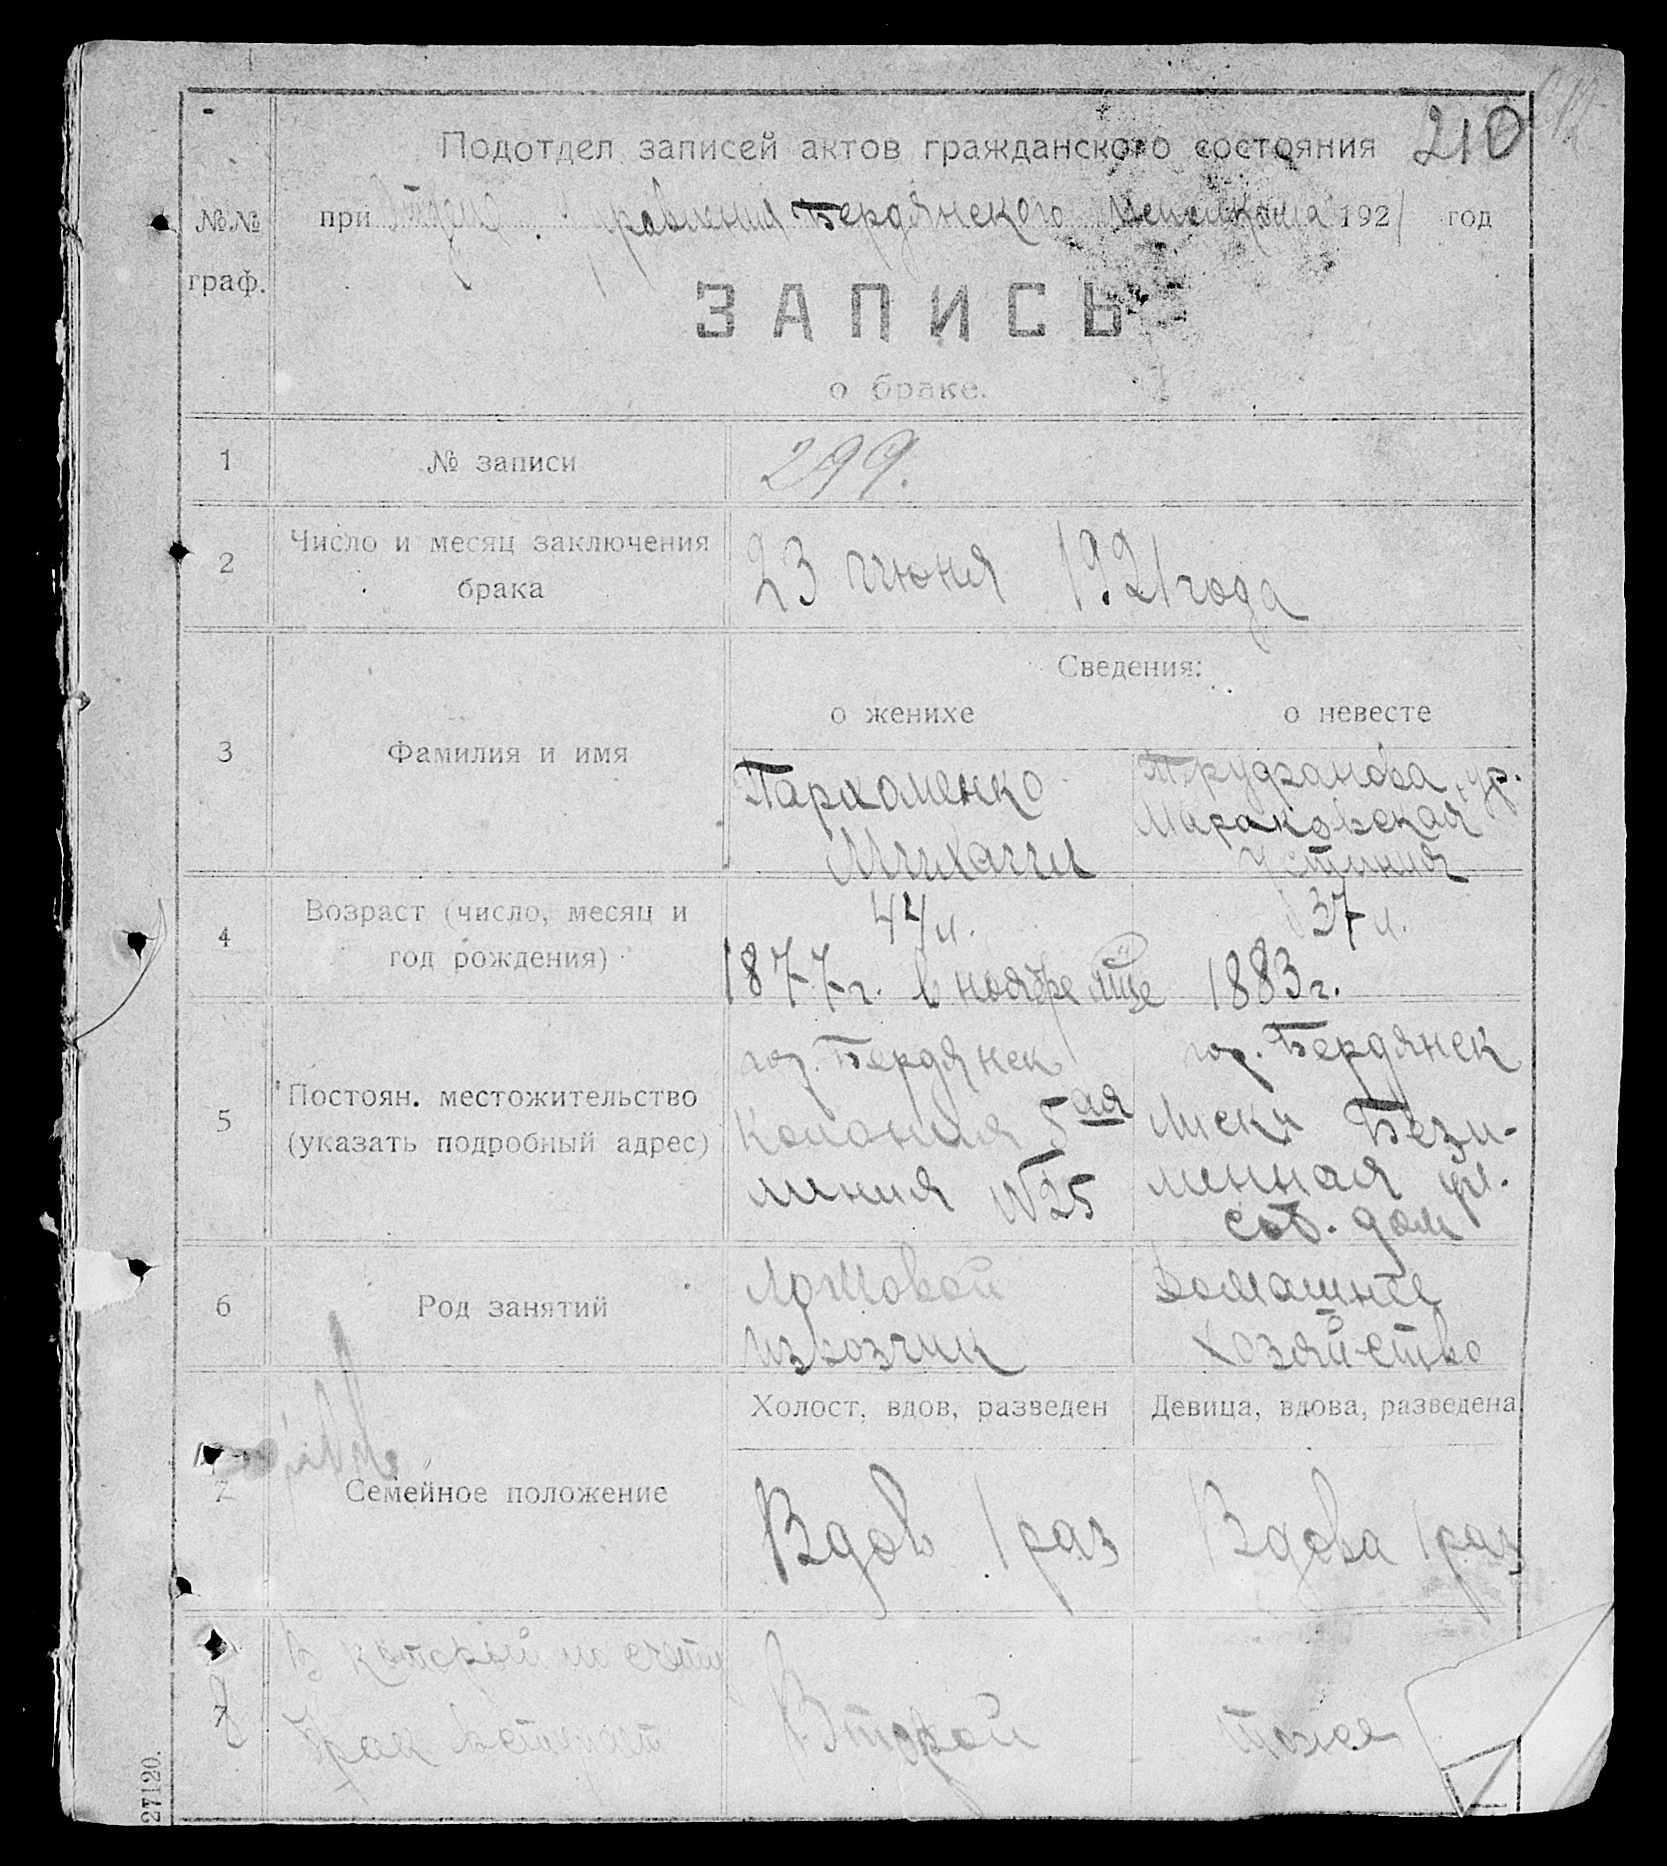 210
Подотдел записей актов гражданского состояния
№№ граф.
при Отделе Управления Бердянского 1921 год
ЗАПИСЬ
о браке.
1
№ записи
299.
2
Число и месяц заключения
брака
23 июня 1921 года
Сведения:
о женихе
о невесте
3
Фамилия и имя
Пархоменко
Михаил
Труфанова, ур.
Мараковская
Устиния
4
Возраст (число, месяц и
год рождения)
44 л.
1877 г. в ноябре м-це
37 л.
1883 г.
5
Постоян. местожительство
(указать подробный адрес)
гор. Бердянск
Колония 5ая
линия №25
гор. Бердянск
Лиски Бези-
менная ул.
соб. дом
6
Род занятий
Ломовой
извозчик
Домашнее
хозяйство
7
Семейное положение
Холост, вдов, разведен
Девица, вдова, разведена
Вдов 1 раз
Вдова 1 раз
8
В который по счету
брак вступает
Второй
тоже
27120.